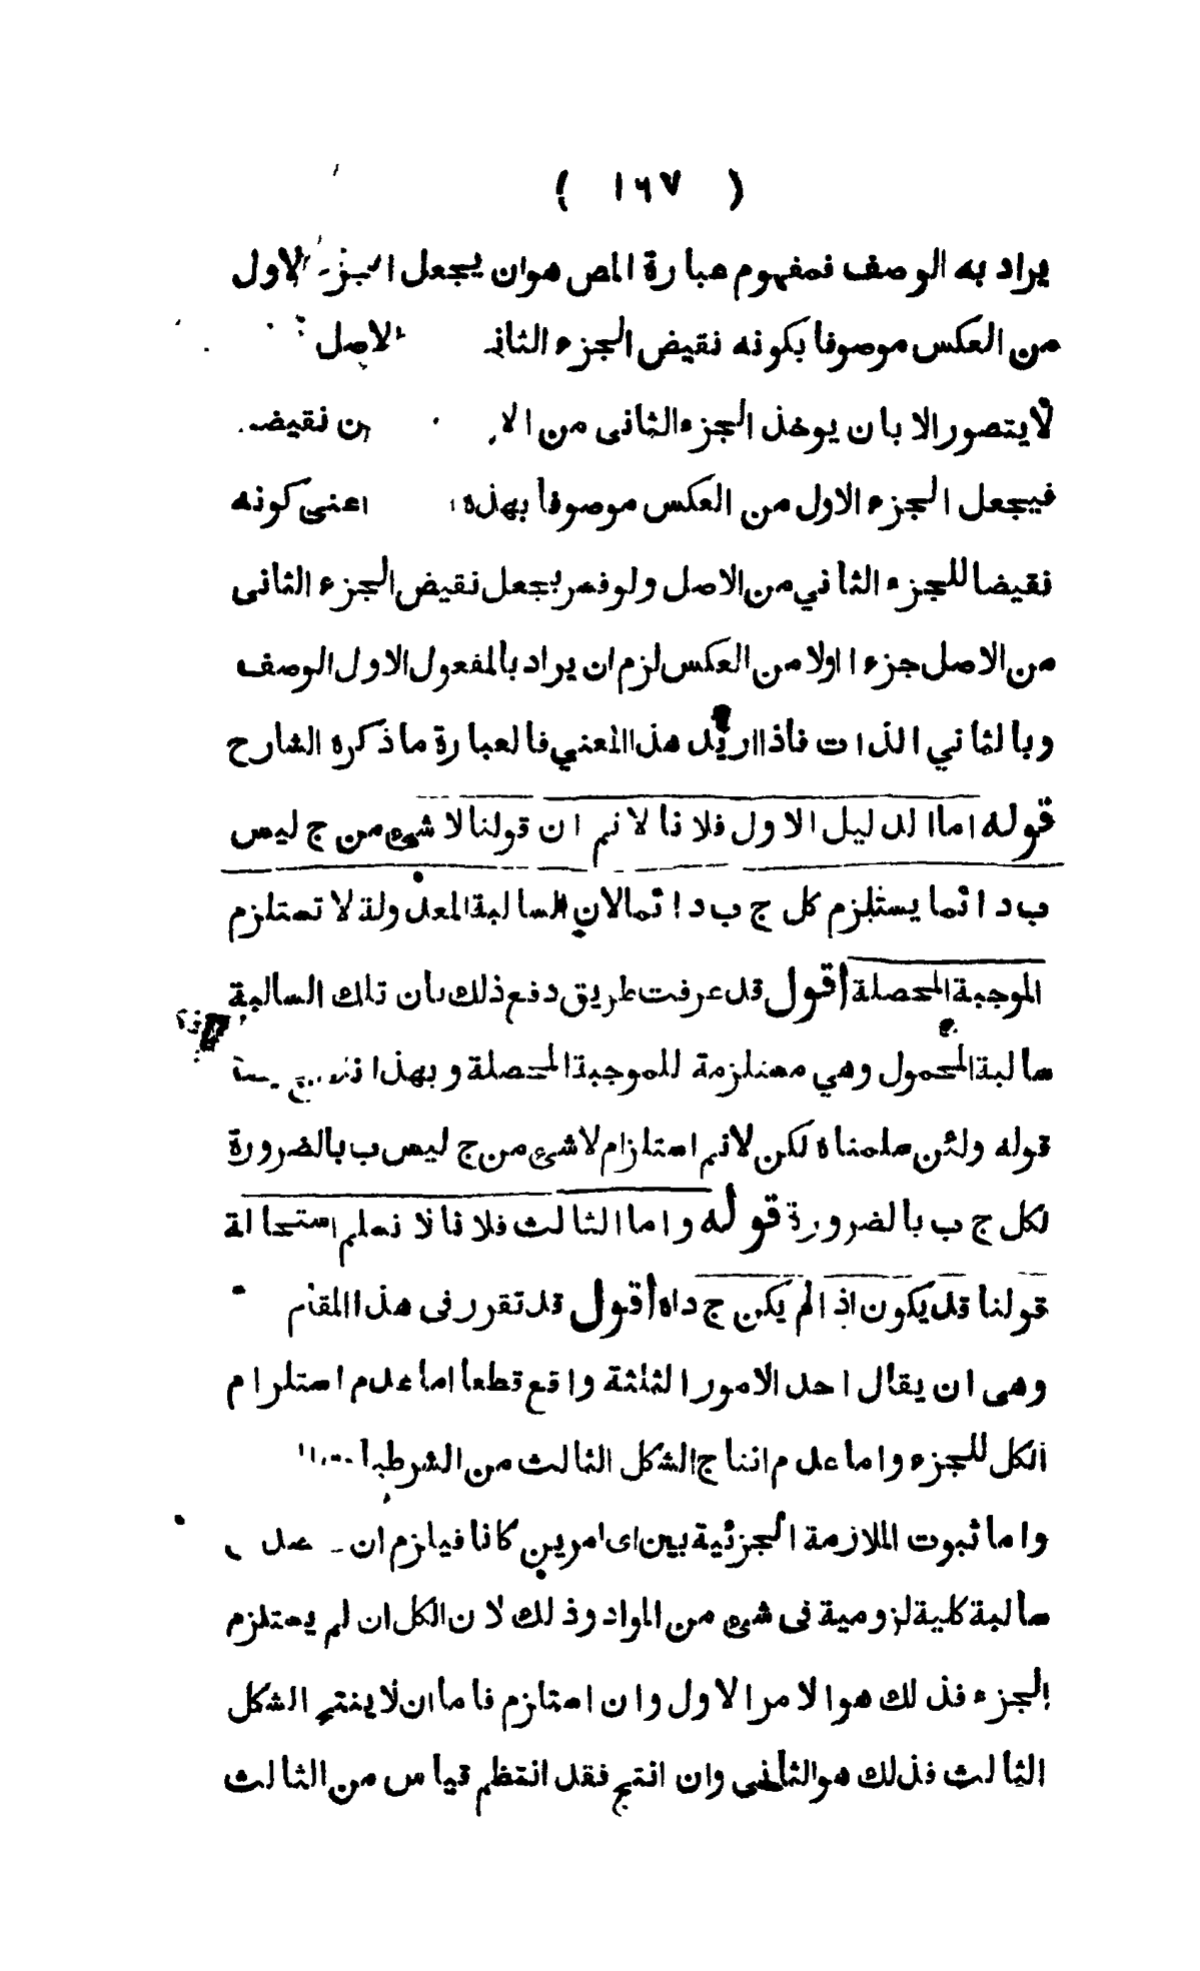 ( ١٦٧ )
يراد به الوصف فمفهوم عبارة المص هوان يجعل الجزء الاول
من العكس موصوفا بكونه نقيض الجزء الثانى الاصل
لايتصور الا بان يوخذ الجزء الثانى من نقيضه
فيجعل الجزء الاول من العكس موصوفا بهذه اعنى كونه
نقيضا للجزء الثاني من الاصل ولو فسر بجعل نقيض الجزء الثانى
من الاصل جزءا اولا من العكس لزم ان يراد بالمفعول الاول الوصف
وبالثاني الذات فاذا اريد هذا المعني فالعبارة ماذكره الشارح
قوله اما الدليل الاول فلانا لا نم ان قولنا لا شئ من ج ليس
ب دائما يستلزم كل ج ب دائما لان السالبة المعدولة لا تستلزم
الموجبة المحصلة أقول قد عرفت طريق دفع ذلك بان تلك السالبة
سالبة المحمول وهي مستلزمة للموجبة المحصلة وبهذا
قوله ولئن سلمناه لكن لانم استلزام لاشئ من ج ليس ب بالضرورة
لكل ج ب بالضرورة قوله واما الثالث فلانا لا نسلم استحالة
قولنا قد يكون اذا لم يكن ج د اه أقول قد تقرر فى هذا المقام
وهى ان يقال احد الامور الثلثة واقع قطعا اما عدم استلزام
الكل للجزء واما عدم انتاج الشكل الثالث من الشرطيا
واما ثبوت الملازمة الجزئية بين اى امرين كانا فيلزم ان
سالبة كلية لزومية فى شئ من المواد وذلك لان الكل ان لم يستلزم
الجزء فذلك هو الامر الاول وان استلزم فاما ان لا ينتج الشكل
الثالث فذلك هو الثانى وان انتج فقد انتظم قياس من الثالث